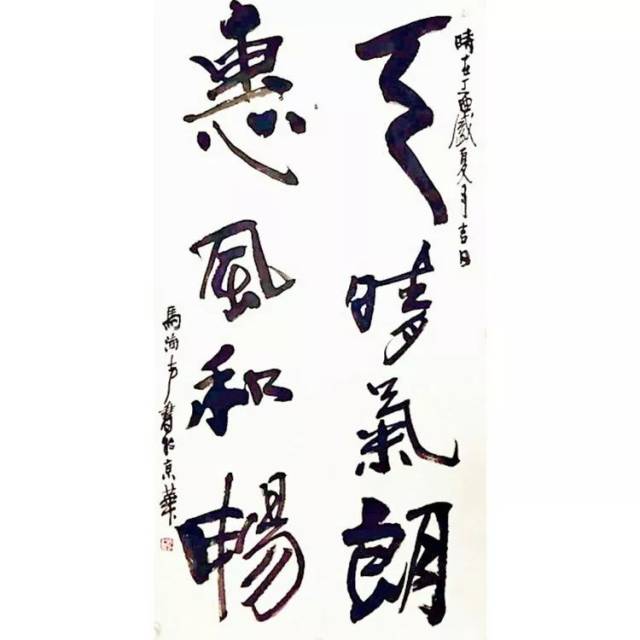 時在丁酉歲夏月吉日
天晴氣朗
惠風和暢
馬海方書於京華